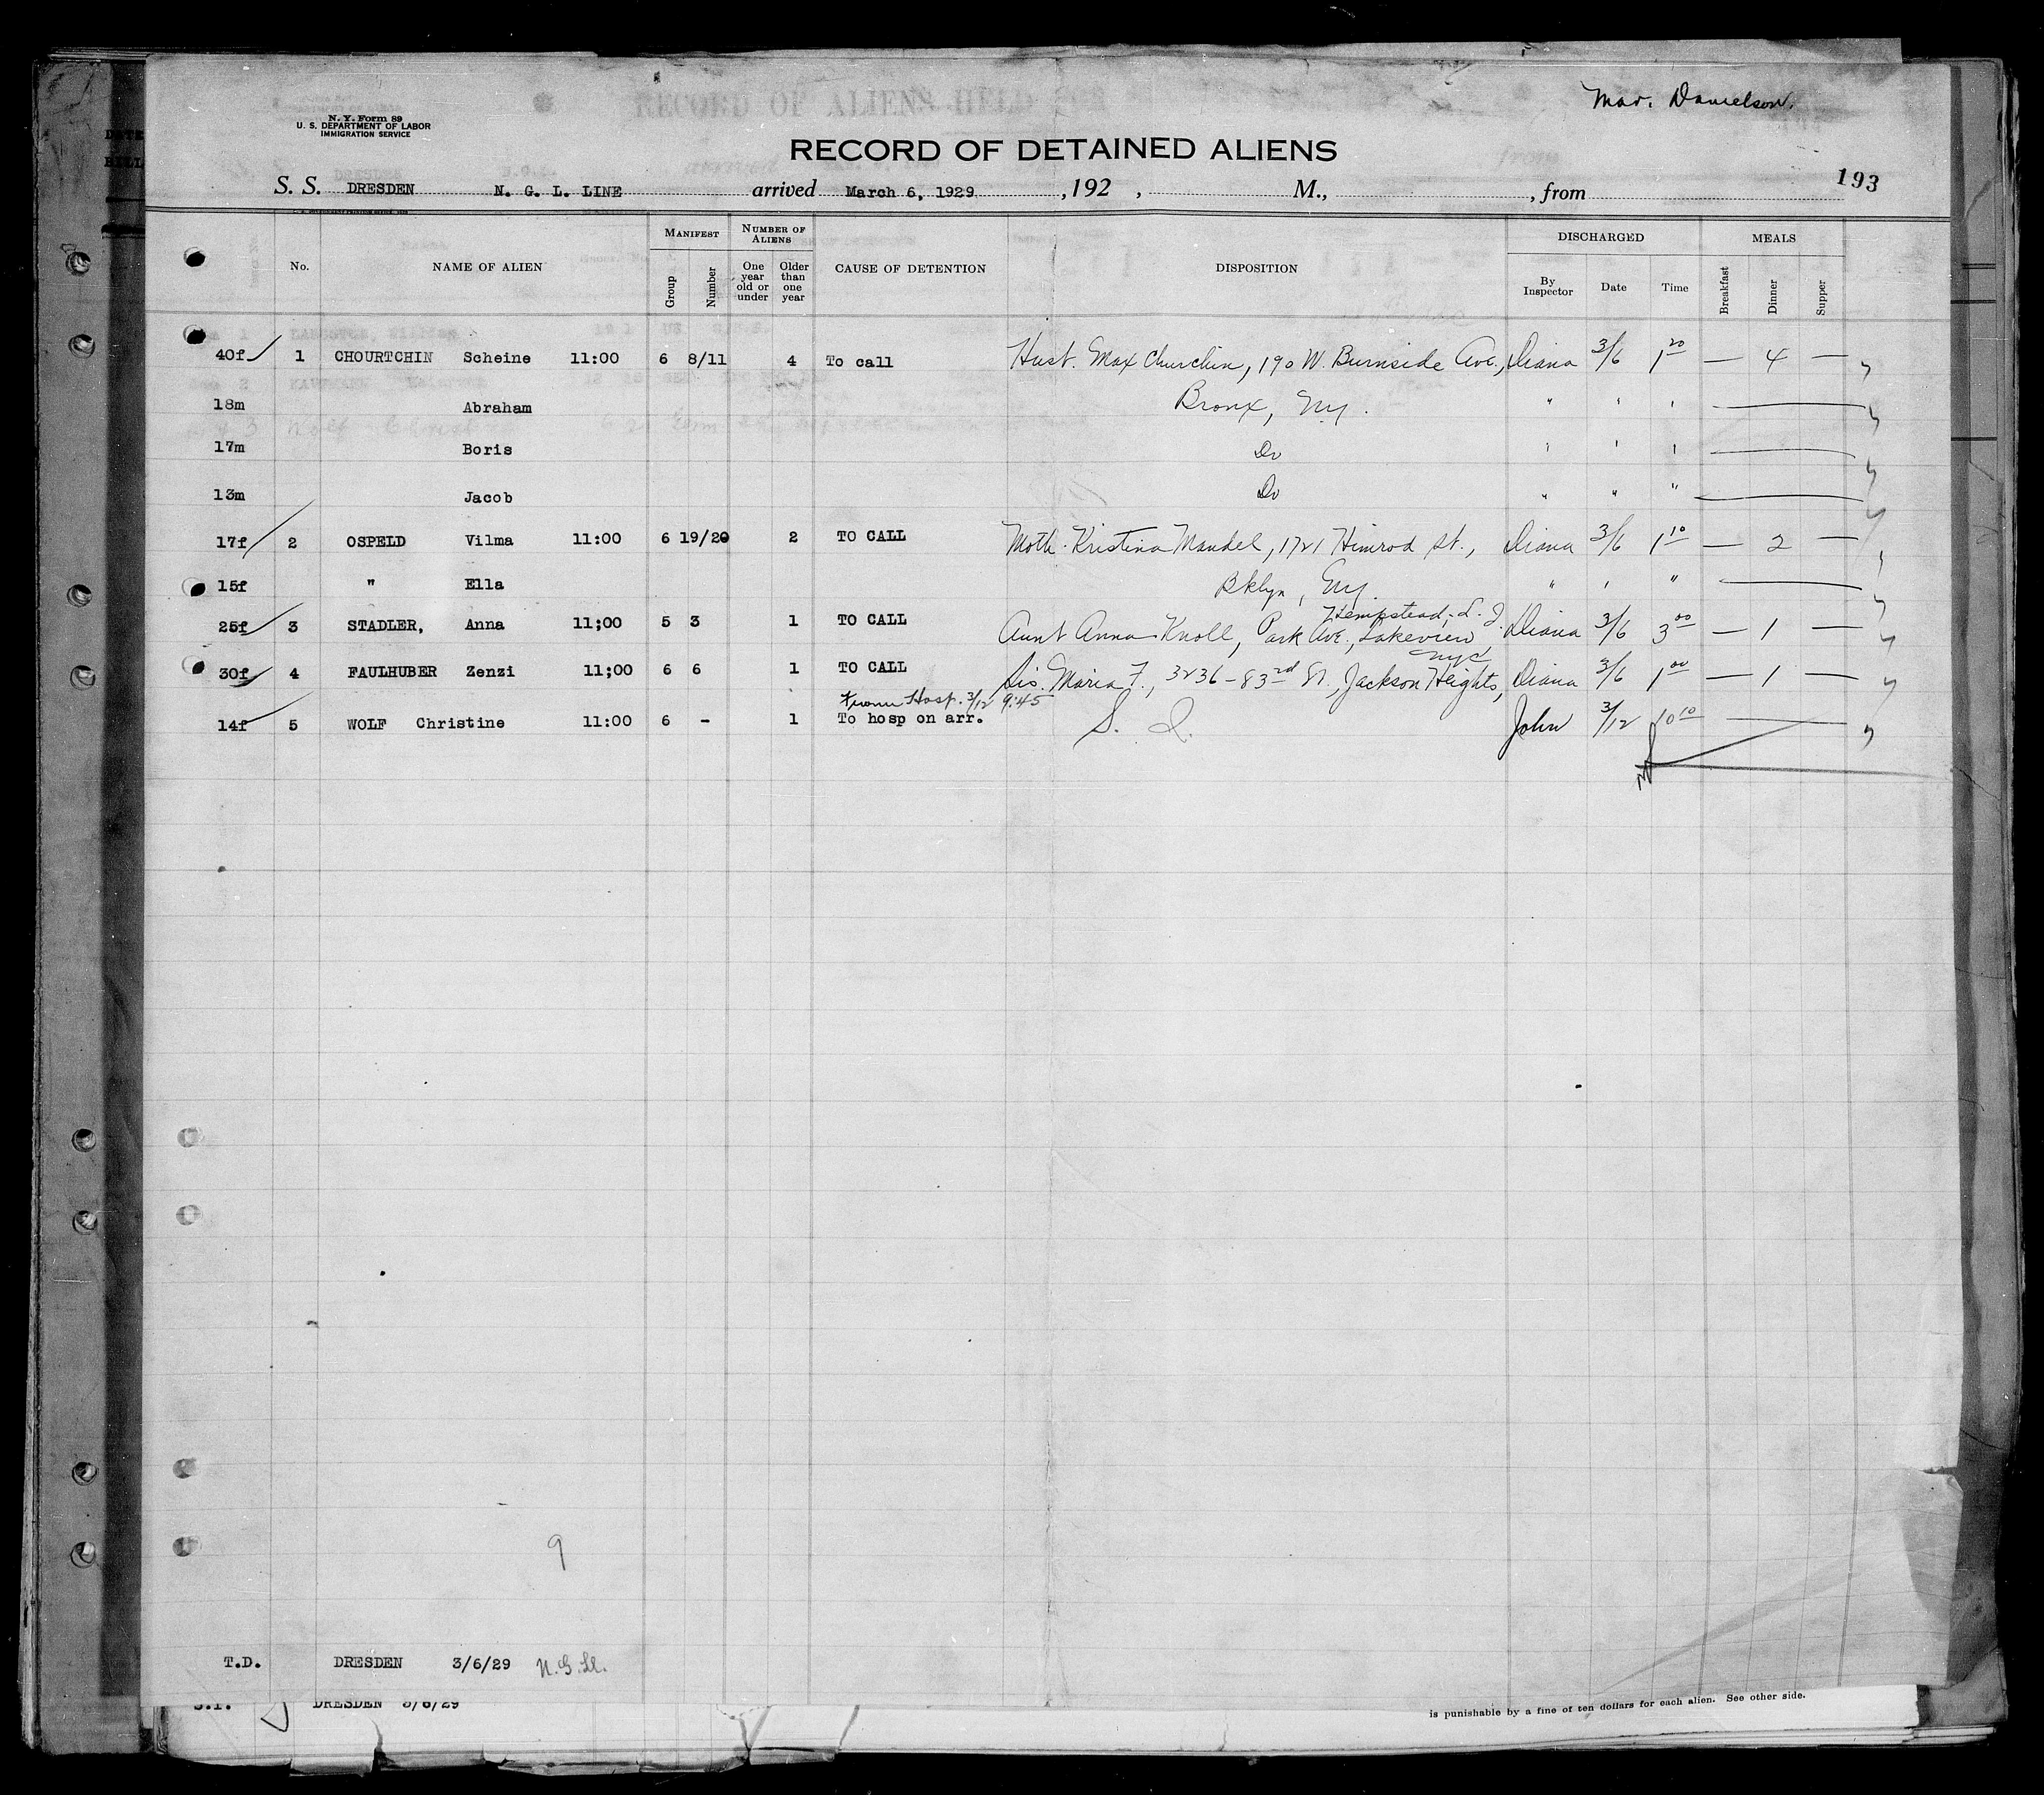 Mar. Danielson.
N. Y. Form 89
U. S. DEPARTMENT OF LABOR
IMMIGRATION SERVICE
RECORD OF ALIENS HELD
RECORD OF DETAINED ALIENS
193
S. S. DRESDEN N. G. L. LINE arrived March 6, 1929 , 192 , M., , from
No. NAME OF ALIEN MANIFEST Group Number NUMBER OF ALIENS One year old or under Older than one year CAUSE OF DETENTION DISPOSITION DISCHARGED By Inspector Date Time MEALS Breakfast Dinner Supper
40f 1 CHOURTCHIN Scheine 11:00 6 8/11 4 To call Husb. Max Churchin, 190 W. Burnside Ave., Diana 3/6 1 20 — 4 —
18m Abraham Bronx, Ny. " " "
17m Boris Do " " "
13m Jacob Do " " "
17f 2 OSPELD Vilma 11:00 6 19/20 2 TO CALL Moth. Kristina Mandel, 1721 Himrod St., Diana 3/6 1 10 — 2 —
15f " Ella Bklyn, Ny. " " "
Hempstead, L. I.
25f 3 STADLER, Anna 11;00 5 3 1 TO CALL Aunt Anna Knoll, Park Ave., Lakeview Diana 3/6 3 00 — 1 —
NYC
30f 4 FAULHUBER Zenzi 11;00 6 6 1 TO CALL Sis. Maria F., 3236-83rd St., Jackson Heights, Diana 3/6 1 00 — 1 —
From Hosp. 3/12 9:45
14f 5 WOLF Christine 11:00 6 - 1 To hosp on arr. S. I. John 3/12 10 10
9
T.D. DRESDEN 3/6/29 N.G.Ll.
S.I. DRESDEN 3/6/29
is punishable by a fine of ten dollars for each alien. See other side.